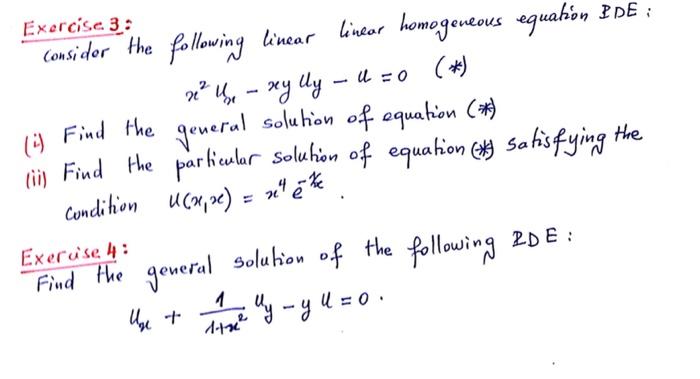 Exercise 3:
Consider the following linear linear homogeneous equation PDE:
x² uₓ - xy u_y - u = 0 (*)
(i) Find the general solution of equation (*)
(ii) Find the particular solution of equation (*) satisfying the
condition u(x,x) = x⁴ e^(-1/x).
Exercise 4:
Find the general solution of the following PDE:
uₓ + 1/(1+x²) u_y - y u = 0.